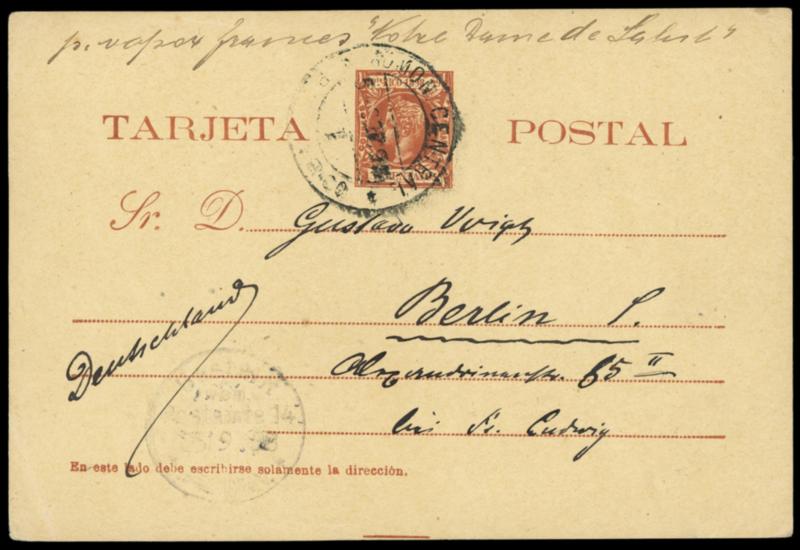 p. vapor frances "Notre Dame de Salut"
TARJETA POSTAL
CENTRAL
Sr. D. Gustavo Voigt
Berlin S.
Deutschland
Alexandrinenstr. 65 II
bei Fr. Ludwig
Postamte 14
En este lado debe escribirse solamente la dirección.